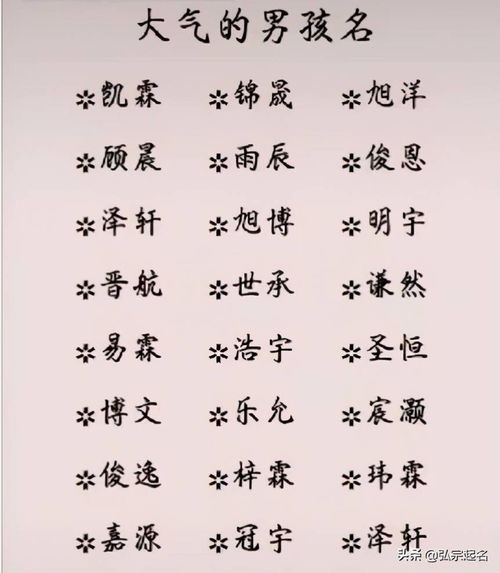 大气的男孩名
✲凯霖 ✲锦晟 ✲旭洋
✲顾晨 ✲雨辰 ✲俊恩
✲泽轩 ✲旭博 ✲明宇
✲晋航 ✲世承 ✲谦然
✲易霖 ✲浩宇 ✲圣恒
✲博文 ✲乐允 ✲宸灏
✲俊逸 ✲梓霖 ✲玮霖
✲嘉源 ✲冠宇 ✲泽轩
头条@弘宗起名